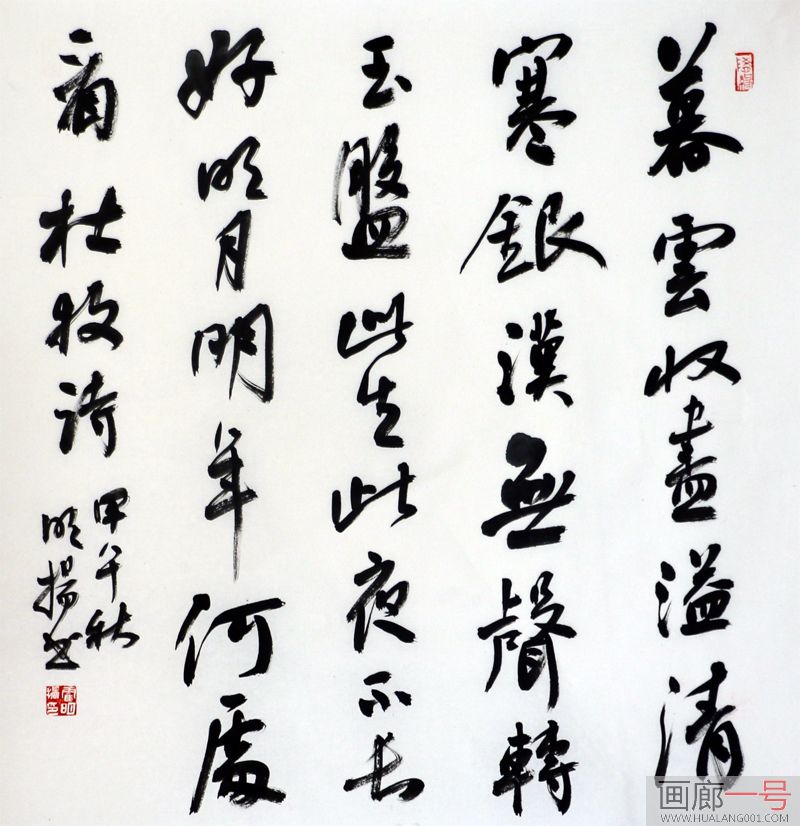 暮雲收盡溢清
寒銀漢無聲轉
玉盤此生此夜不長
好明月明年何處
看杜牧诗
甲午秋
明揚书
画廊一号
WWW.HUALANG001.COM